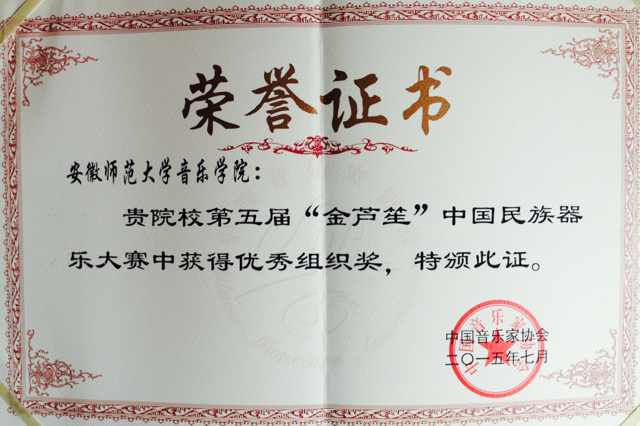 荣誉证书
安徽师范大学音乐学院：
贵院校第五届“金芦笙”中国民族器
乐大赛中获得优秀组织奖，特颁此证。
中国音乐家协会
二〇一五年七月